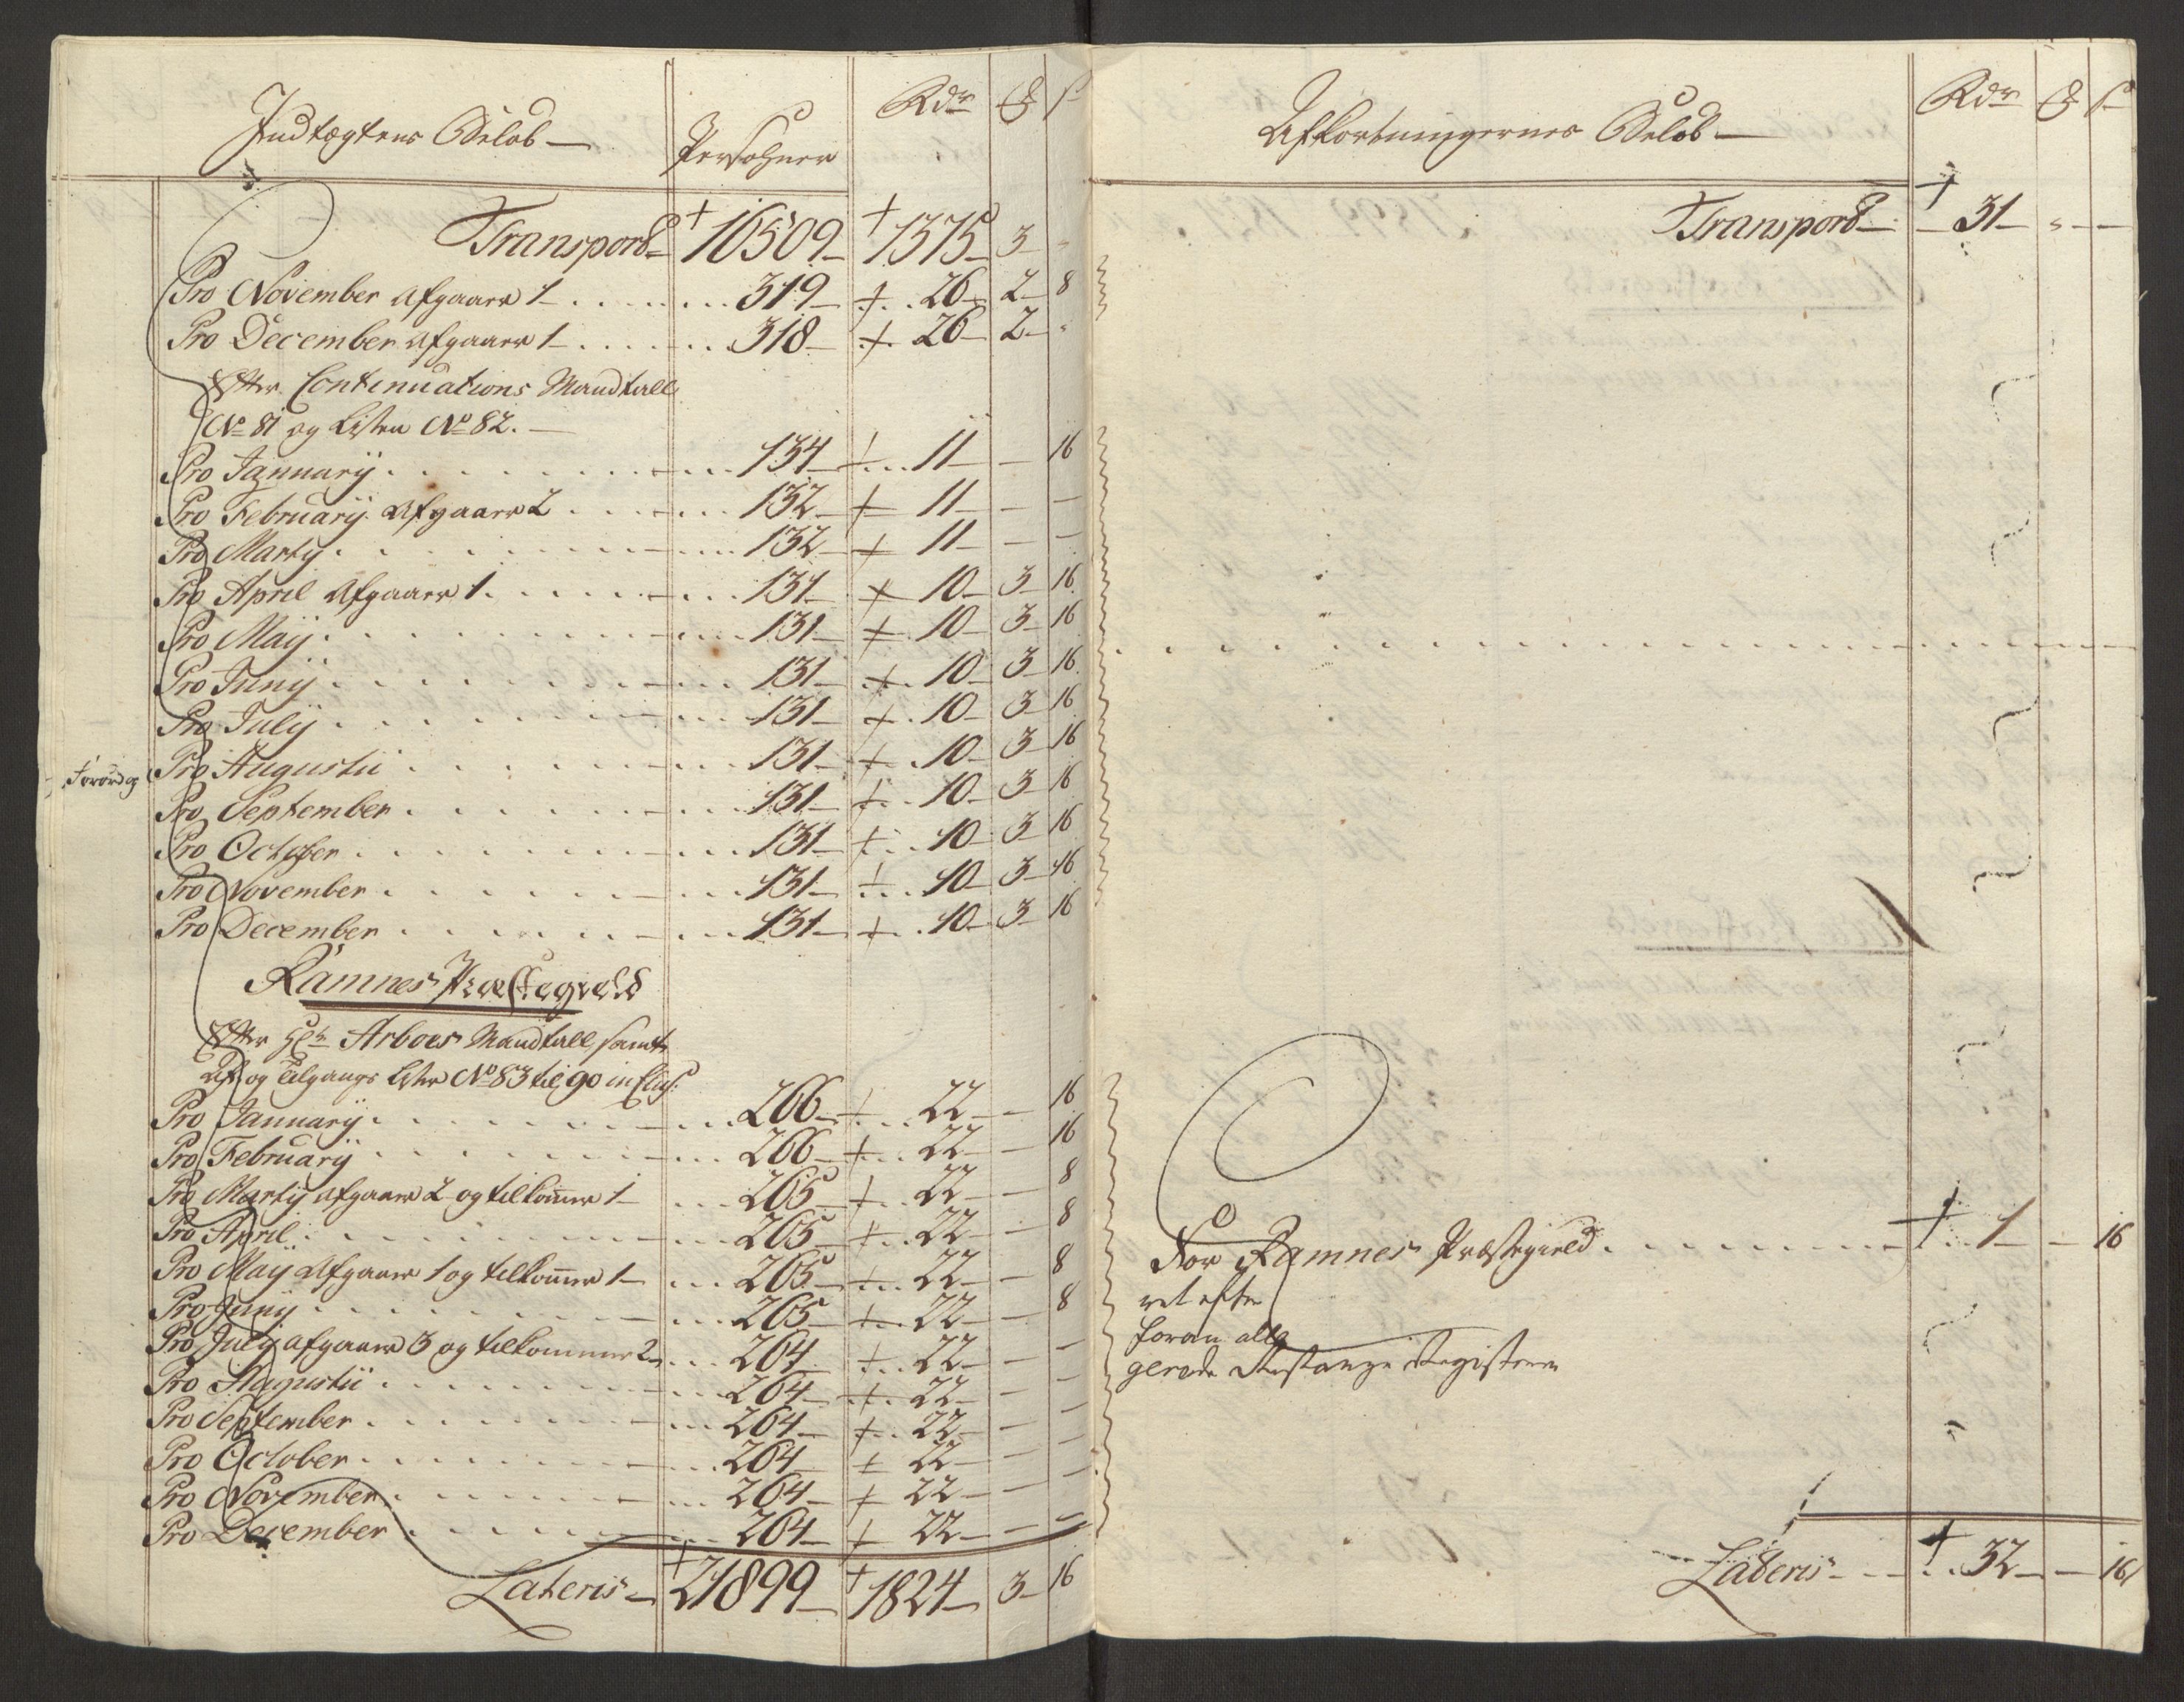 Indtægtens Beløb — Persohner Rdr ₰ s
Transport — 16509 — 1375 — 3 — "
Pro November afgaaer 1 — 319 — 26 — 2 — 8
Pro December afgaaer 1 — 318 — 26 — 2 — "
Efter Continuations Mandtall
No 81 og Listen No 82. —
Pro Januarÿ 134 — 11 — — 16
Pro Februarÿ Afgaaer 2 132 — 11 — — —
Pro Martÿ 132 — 11 — — —
Pro April Afgaaer 1 131 — 10 — 3 — 16
Pro Maÿ 131 — 10 — 3 — 16
Pro Junÿ 131 — 10 — 3 — 16
Pro Julÿ 131 — 10 — 3 — 16
Pro Augustii 131 — 10 — 3 — 16
Pro September 131 — 10 — 3 — 16
Pro October 131 — 10 — 3 — 16
Pro November 131 — 10 — 3 — 16
Pro December 131 — 10 — 3 — 16
Ramnes Præstegield
Efter Hr Arboes Mandtall samt
Af og Tilgangs Lister No 83 til 90 inclus:
Pro Januarÿ 266 — 22 — — 16
Pro Februarÿ 266 — 22 — — 16
Pro Martÿ afgaaer 2 og tilkomer 1 — 265 — 22 — — 8
Pro April 265 — 22 — — 8
Pro Maÿ Afgaaer 1 og tilkomer 1 — 265 — 22 — — 8
Pro Junÿ 265 — 22 — — 8
Pro Julÿ afgaaer 3 og tilkommer 2 — 264 — 22 — — —
Pro Augustii 264 — 22 — — —
Pro September 264 — 22 — — —
Pro October 264 — 22 — — —
Pro November 264 — 22 — — —
Pro December 264 — 22 — — —
Lateris — 21899 — 1824 — 3 — 16
Afkortningernes Beløb — Rdr ₰ s
Transport — 31 — " — —
For Ramnes Præstegield 1 — — 16
foran alle
gerede Restanze Registeren
Lateris — 32 — — 16